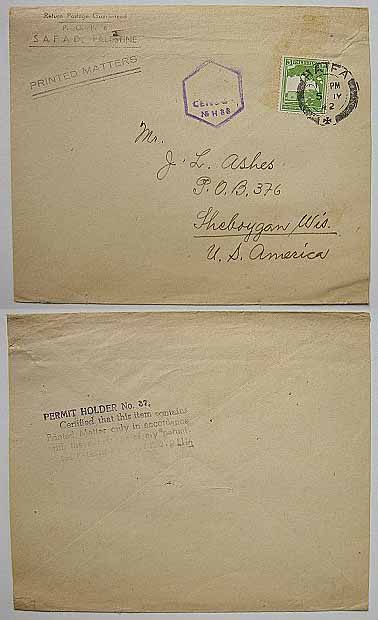 Return Postage Guaranteed
SAFAD, PALESTINE
PRINTED MATTERS
CENSOR
N H 88
HAIFA
PM
5 IY
42
Mr.
J. L. Ashes
P.O.B. 376
Sheboygan Wis.
U. S. America
PERMIT HOLDER No. 37.
Certified that this item contains
Printed Matter only in accordance
with the of my permit.